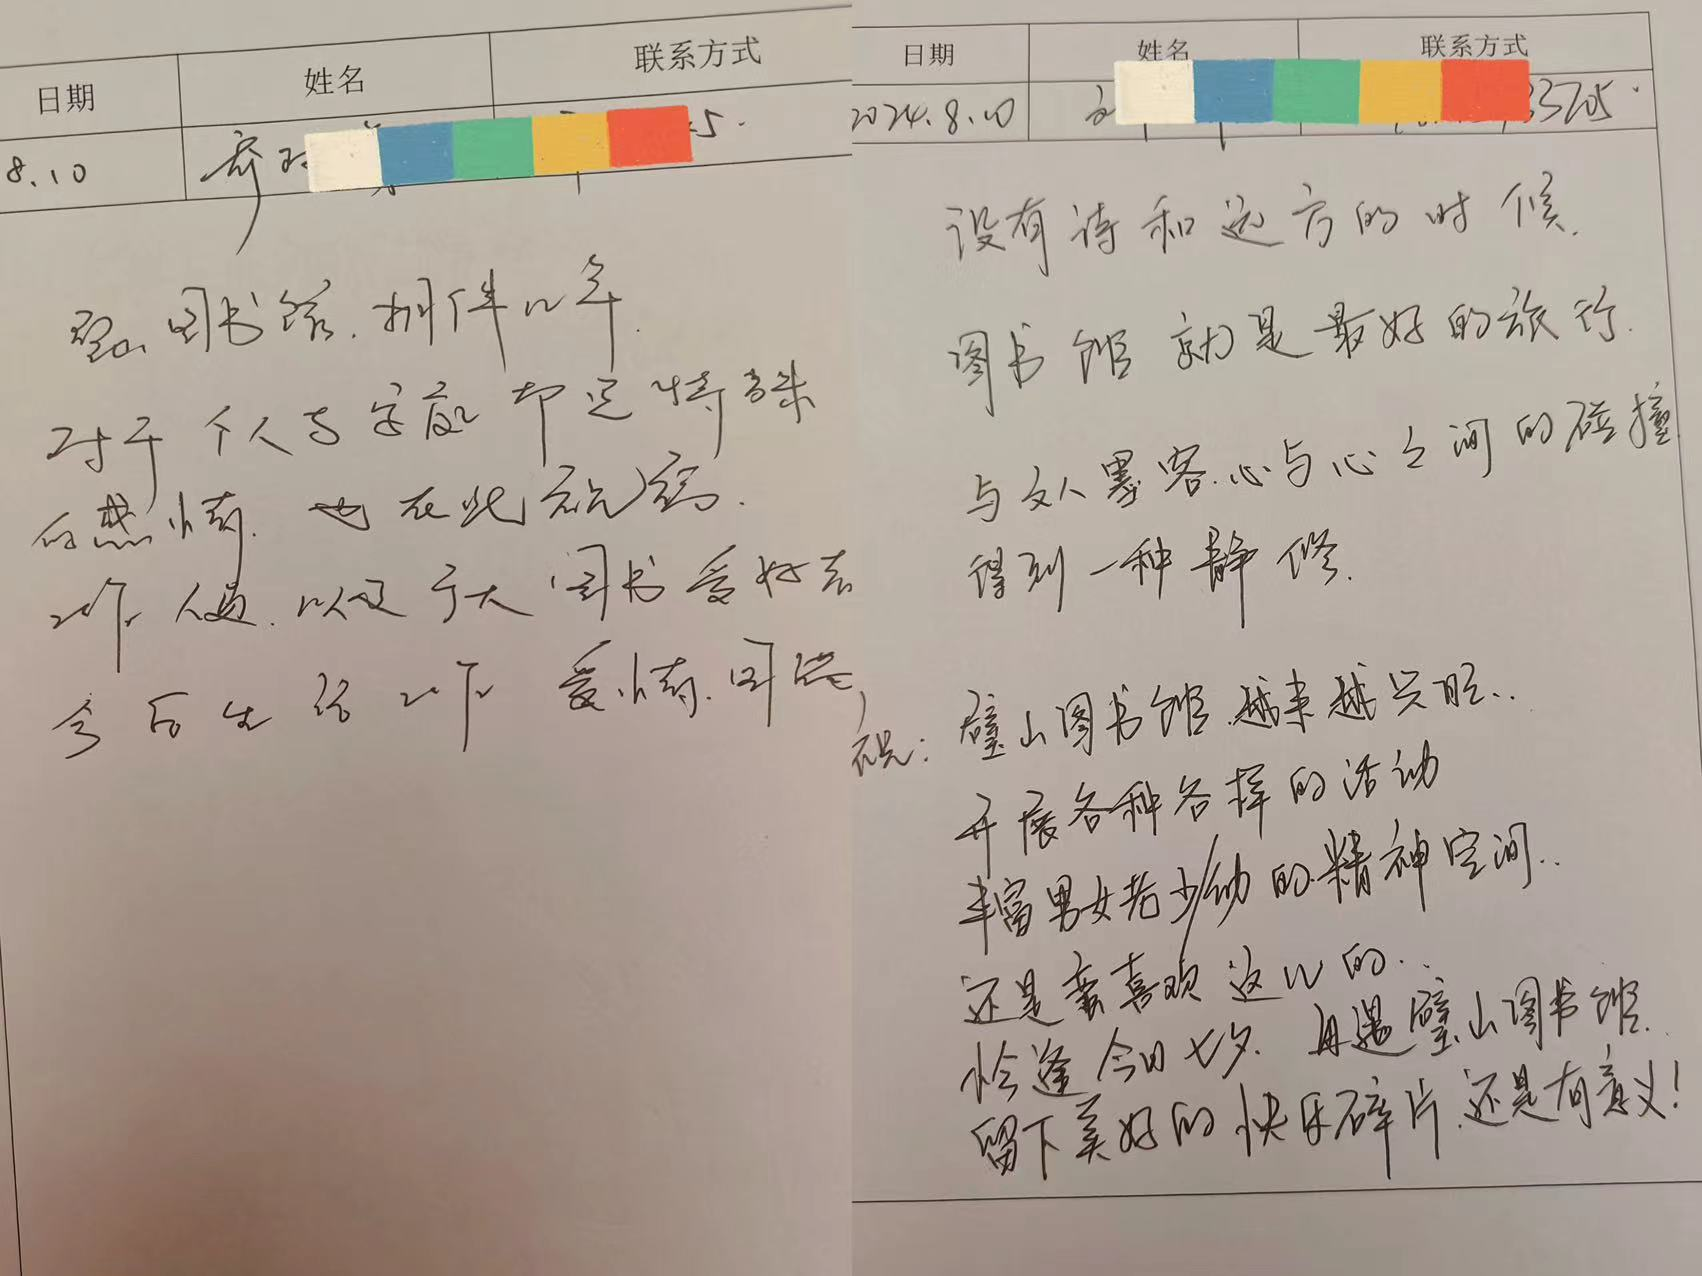 日期 姓名 联系方式
8.10 乔
璧山图书馆.相伴几年.
对于个人与家庭却是特殊
的感情.也在此祝福.
工作人员.以及广大图书爱好者
今后生活工作爱情.
日期 姓名 联系方式
2024.8.10 33705
没有诗和远方的时候.
图书馆就是最好的旅行.
与文人墨客.心与心之间的碰撞
得到一种静修.
祝:璧山图书馆.越来越兴旺..
开展各种各样的活动
丰富男女老少/幼的精神空间..
还是蛮喜欢这儿的..
恰逢今日七夕.再遇璧山图书馆.
留下美好的快乐碎片.还是有意义!